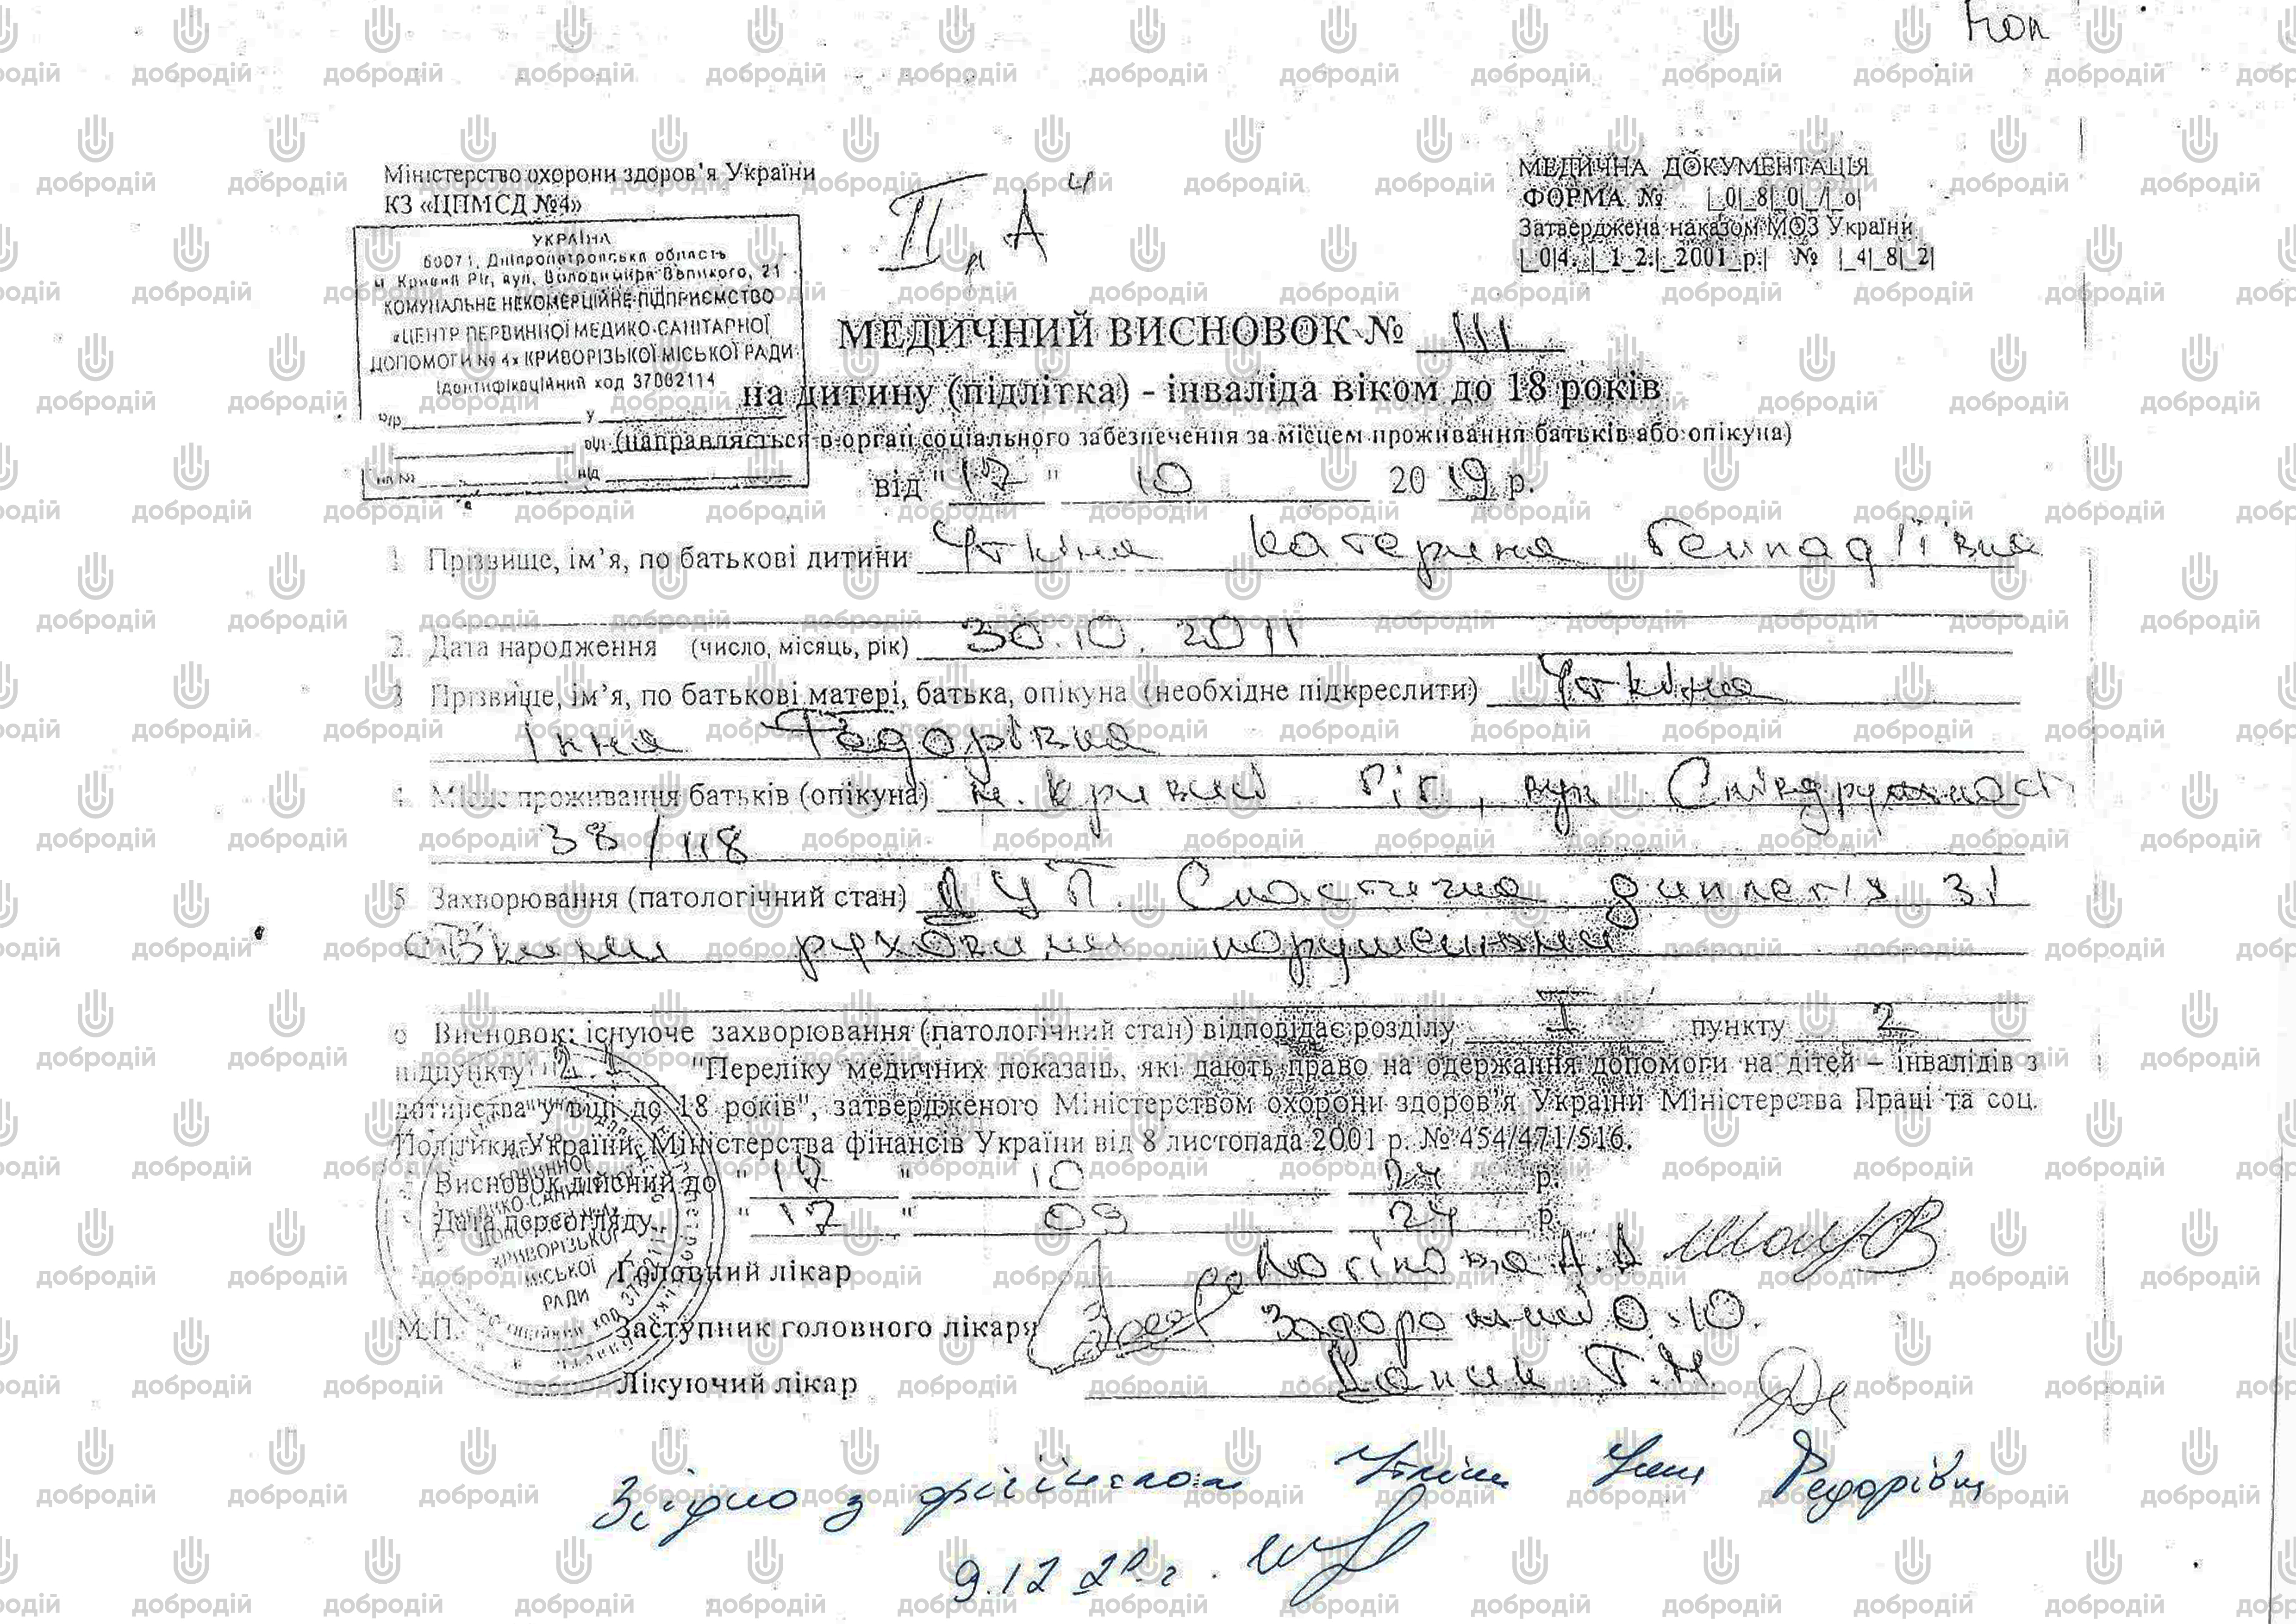 Коп
Міністерство охорони здоров'я України
КЗ «ЦПМСД №4»
УКРАЇНА
50071, Дніпропетровська область
м. Кривий Ріг, вул. Володимира Великого, 21
КОМУНАЛЬНЕ НЕКОМЕРЦІЙНЕ ПІДПРИЄМСТВО
«ЦЕНТР ПЕРВИННОЇ МЕДИКО-САНІТАРНОЇ
ДОПОМОГИ № 4» КРИВОРІЗЬКОЇ МІСЬКОЇ РАДИ
Ідентифікаційний код 37002114
р/р у
від
II „А“
МЕДИЧНА ДОКУМЕНТАЦІЯ
ФОРМА № |_0|_8|_0|_/|_о|
Затверджена наказом МОЗ України
|_0|4.|_1_2.|_2001_р.| № |_4|_8|_2|
МЕДИЧНИЙ ВИСНОВОК № 111
на дитину (підлітка) - інваліда віком до 18 років
(направляється в орган соціального забезпечення за місцем проживання батьків або опікуна)
від "17" 10 2019 р.
1 Прізвище, ім'я, по батькові дитини Уткіна Катерина Геннадіївна
2. Дата народження (число, місяць, рік) 30.10.2011
3 Прізвище, ім'я, по батькові матері, батька, опікуна (необхідне підкреслити) Уткіна
Інна Федорівна
4. Місце проживання батьків (опікуна) м. Кривий Ріг, вул Співдружності
38/118
5 Захворювання (патологічний стан) ДЦП. Спастична диплегія зі
стійкими руховими порушеннями
6 Висновок: існуюче захворювання (патологічний стан) відповідає розділу I пункту 2
підпункту 2.1 "Переліку медичних показань, які дають право на одержання допомоги на дітей – інвалідів з
дитинства у віці до 18 років", затвердженого Міністерством охорони здоров'я України Міністерства Праці та соц.
Політики України, Міністерства фінансів України від 8 листопада 2001 р. № 454/471/516.
Висновок дійсний до "17" 10 24 р.
Дата переогляду "17" 09 24 р.
Головний лікар Логінова А.А
М.П. Заступник головного лікаря Задорожний О.Ю.
Лікуючий лікар Т.М.
КРИВОРІЗЬКОЇ
МІСЬКОЇ
РАДИ
Згідно з оригіналом Уткіна Інна Федорівна
9.12.20 г.
добродій